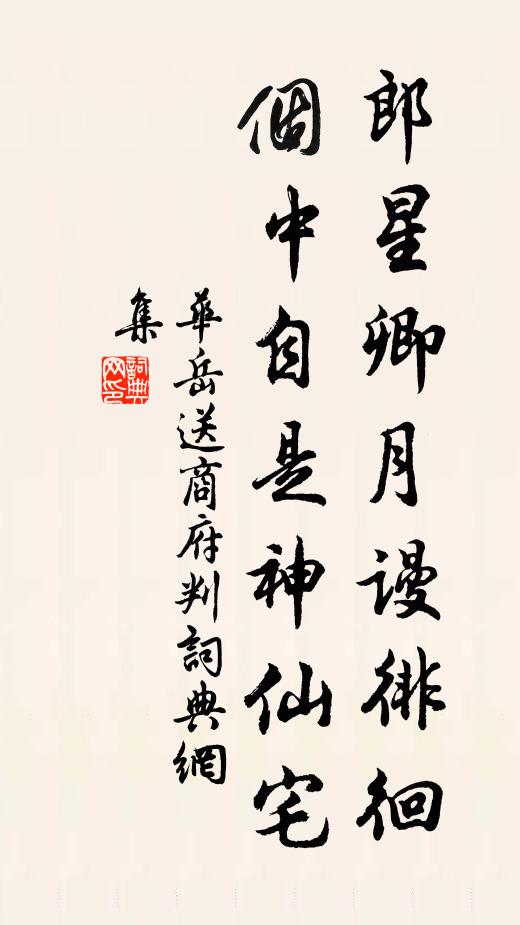 郎星卿月謾徘徊
個中自是神仙宅
華岳送商府判詞典網
集
詞典網印